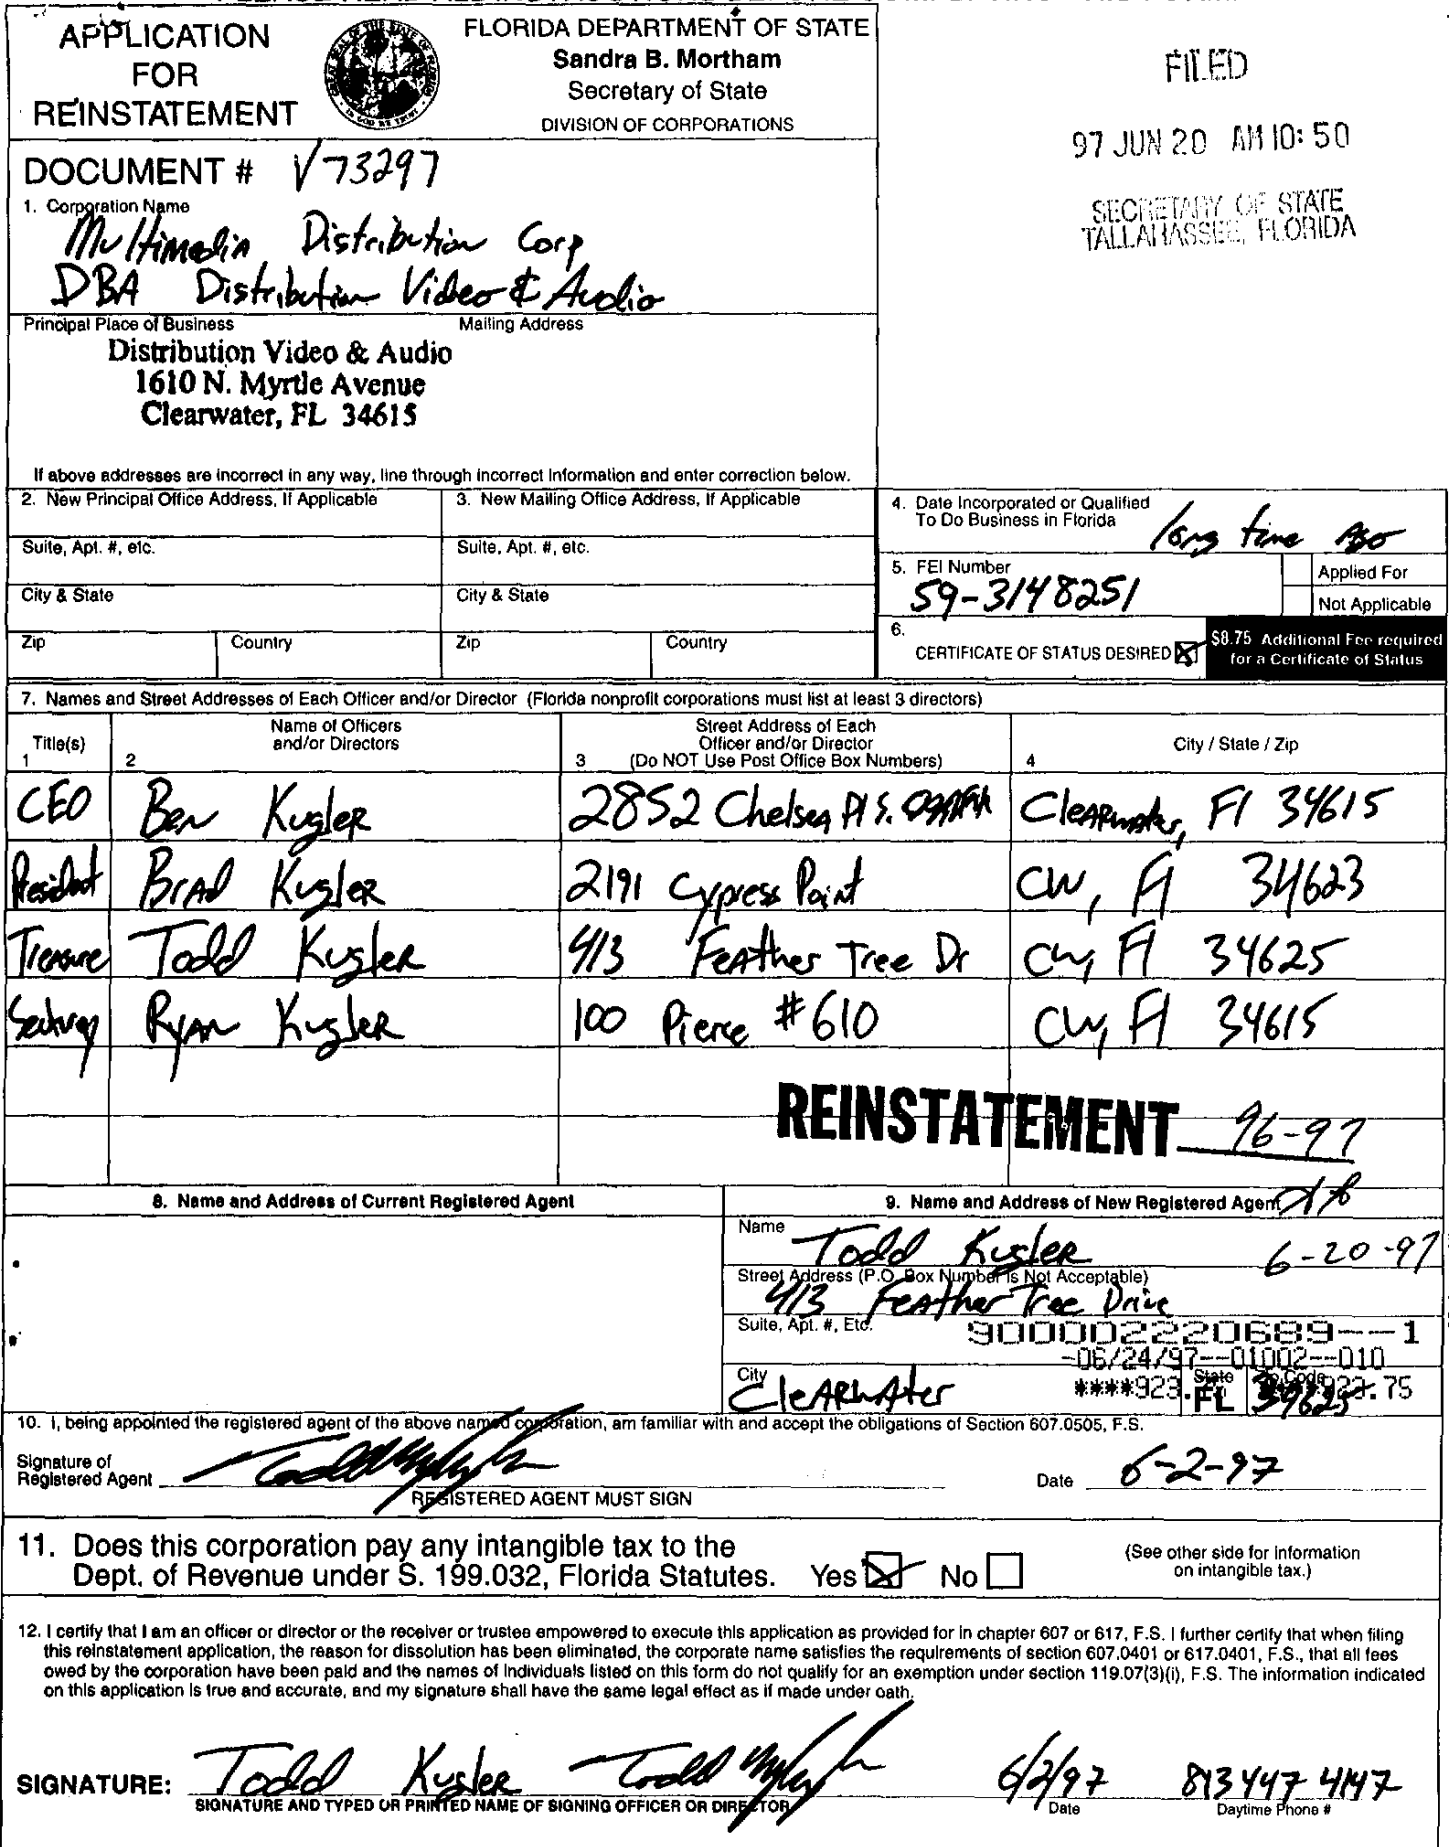 APPLICATION
FOR
REINSTATEMENT
FLORIDA DEPARTMENT OF STATE
Sandra B. Mortham
Secretary of State
DIVISION OF CORPORATIONS
FILED
97 JUN 20 AM 10:50
SECRETARY OF STATE
TALLAHASSEE, FLORIDA
DOCUMENT # V73297
1. Corporation Name
Multimedia Distribution Corp
DBA Distribution Video & Audio
Principal Place of Business Mailing Address
Distribution Video & Audio
1610 N. Myrtle Avenue
Clearwater, FL 34615
If above addresses are incorrect in any way, line through incorrect information and enter correction below.
2. New Principal Office Address, If Applicable
3. New Mailing Office Address, If Applicable
4. Date Incorporated or Qualified
To Do Business in Florida
long time ago
Suite, Apt. #, etc.
Suite, Apt. #, etc.
5. FEI Number
59-3148251
Applied For
Not Applicable
City & State
City & State
Zip Country Zip Country
6.
CERTIFICATE OF STATUS DESIRED
$8.75 Additional Fee required
for a Certificate of Status
7. Names and Street Addresses of Each Officer and/or Director (Florida nonprofit corporations must list at least 3 directors)
Title(s)
1
Name of Officers
and/or Directors
2
Street Address of Each
Officer and/or Director
3 (Do NOT Use Post Office Box Numbers)
City / State / Zip
4
CEO Ben Kugler 2852 Chelsea Pl S. Clearwater, Fl 34615
President Brad Kugler 2191 Cypress Point CW, Fl 34623
Treasure Todd Kugler 413 Feather Tree Dr CW, Fl 34625
Ryan Kugler 100 Pierce #610 CW, Fl 34615
REINSTATEMENT 96-97
8. Name and Address of Current Registered Agent
9. Name and Address of New Registered Agent
Name
Todd Kugler
6-20-97
Street Address (P.O. Box Number is Not Acceptable)
413 Feather Tree Drive
Suite, Apt. #, Etc.
900002220689--1
-06/24/97--01002--010
City
Clearwater
State
FL
Zip Code
34625
10. I, being appointed the registered agent of the above named corporation, am familiar with and accept the obligations of Section 607.0505, F.S.
Signature of
Registered Agent
Date 6-2-97
REGISTERED AGENT MUST SIGN
11. Does this corporation pay any intangible tax to the
Dept. of Revenue under S. 199.032, Florida Statutes. Yes No
(See other side for information
on intangible tax.)
12. I certify that I am an officer or director or the receiver or trustee empowered to execute this application as provided for in chapter 607 or 617, F.S. I further certify that when filing
this reinstatement application, the reason for dissolution has been eliminated, the corporate name satisfies the requirements of section 607.0401 or 617.0401, F.S., that all fees
owed by the corporation have been paid and the names of individuals listed on this form do not qualify for an exemption under section 119.07(3)(i), F.S. The information indicated
on this application is true and accurate, and my signature shall have the same legal effect as if made under oath.
SIGNATURE: Todd Kugler 6/2/97 813 447 4147
SIGNATURE AND TYPED OR PRINTED NAME OF SIGNING OFFICER OR DIRECTOR
Date
Daytime Phone #